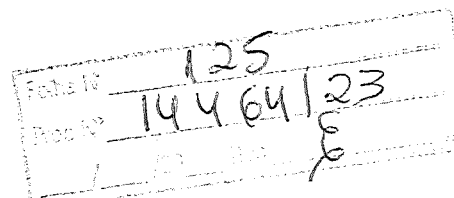 Folha Nº 125
Proc. Nº 14464123